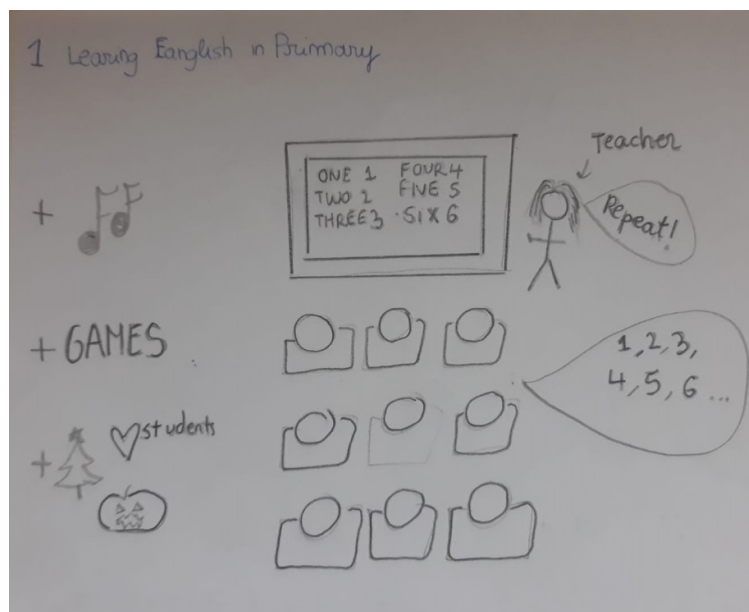 1 Learing Eanglish in Primary
Teacher
ONE 1 FOUR 4
TWO 2 FIVE 5
THREE 3 SIX 6
Repeat!
+ GAMES
1, 2, 3,
4, 5, 6 ...
+ ♡ students
+